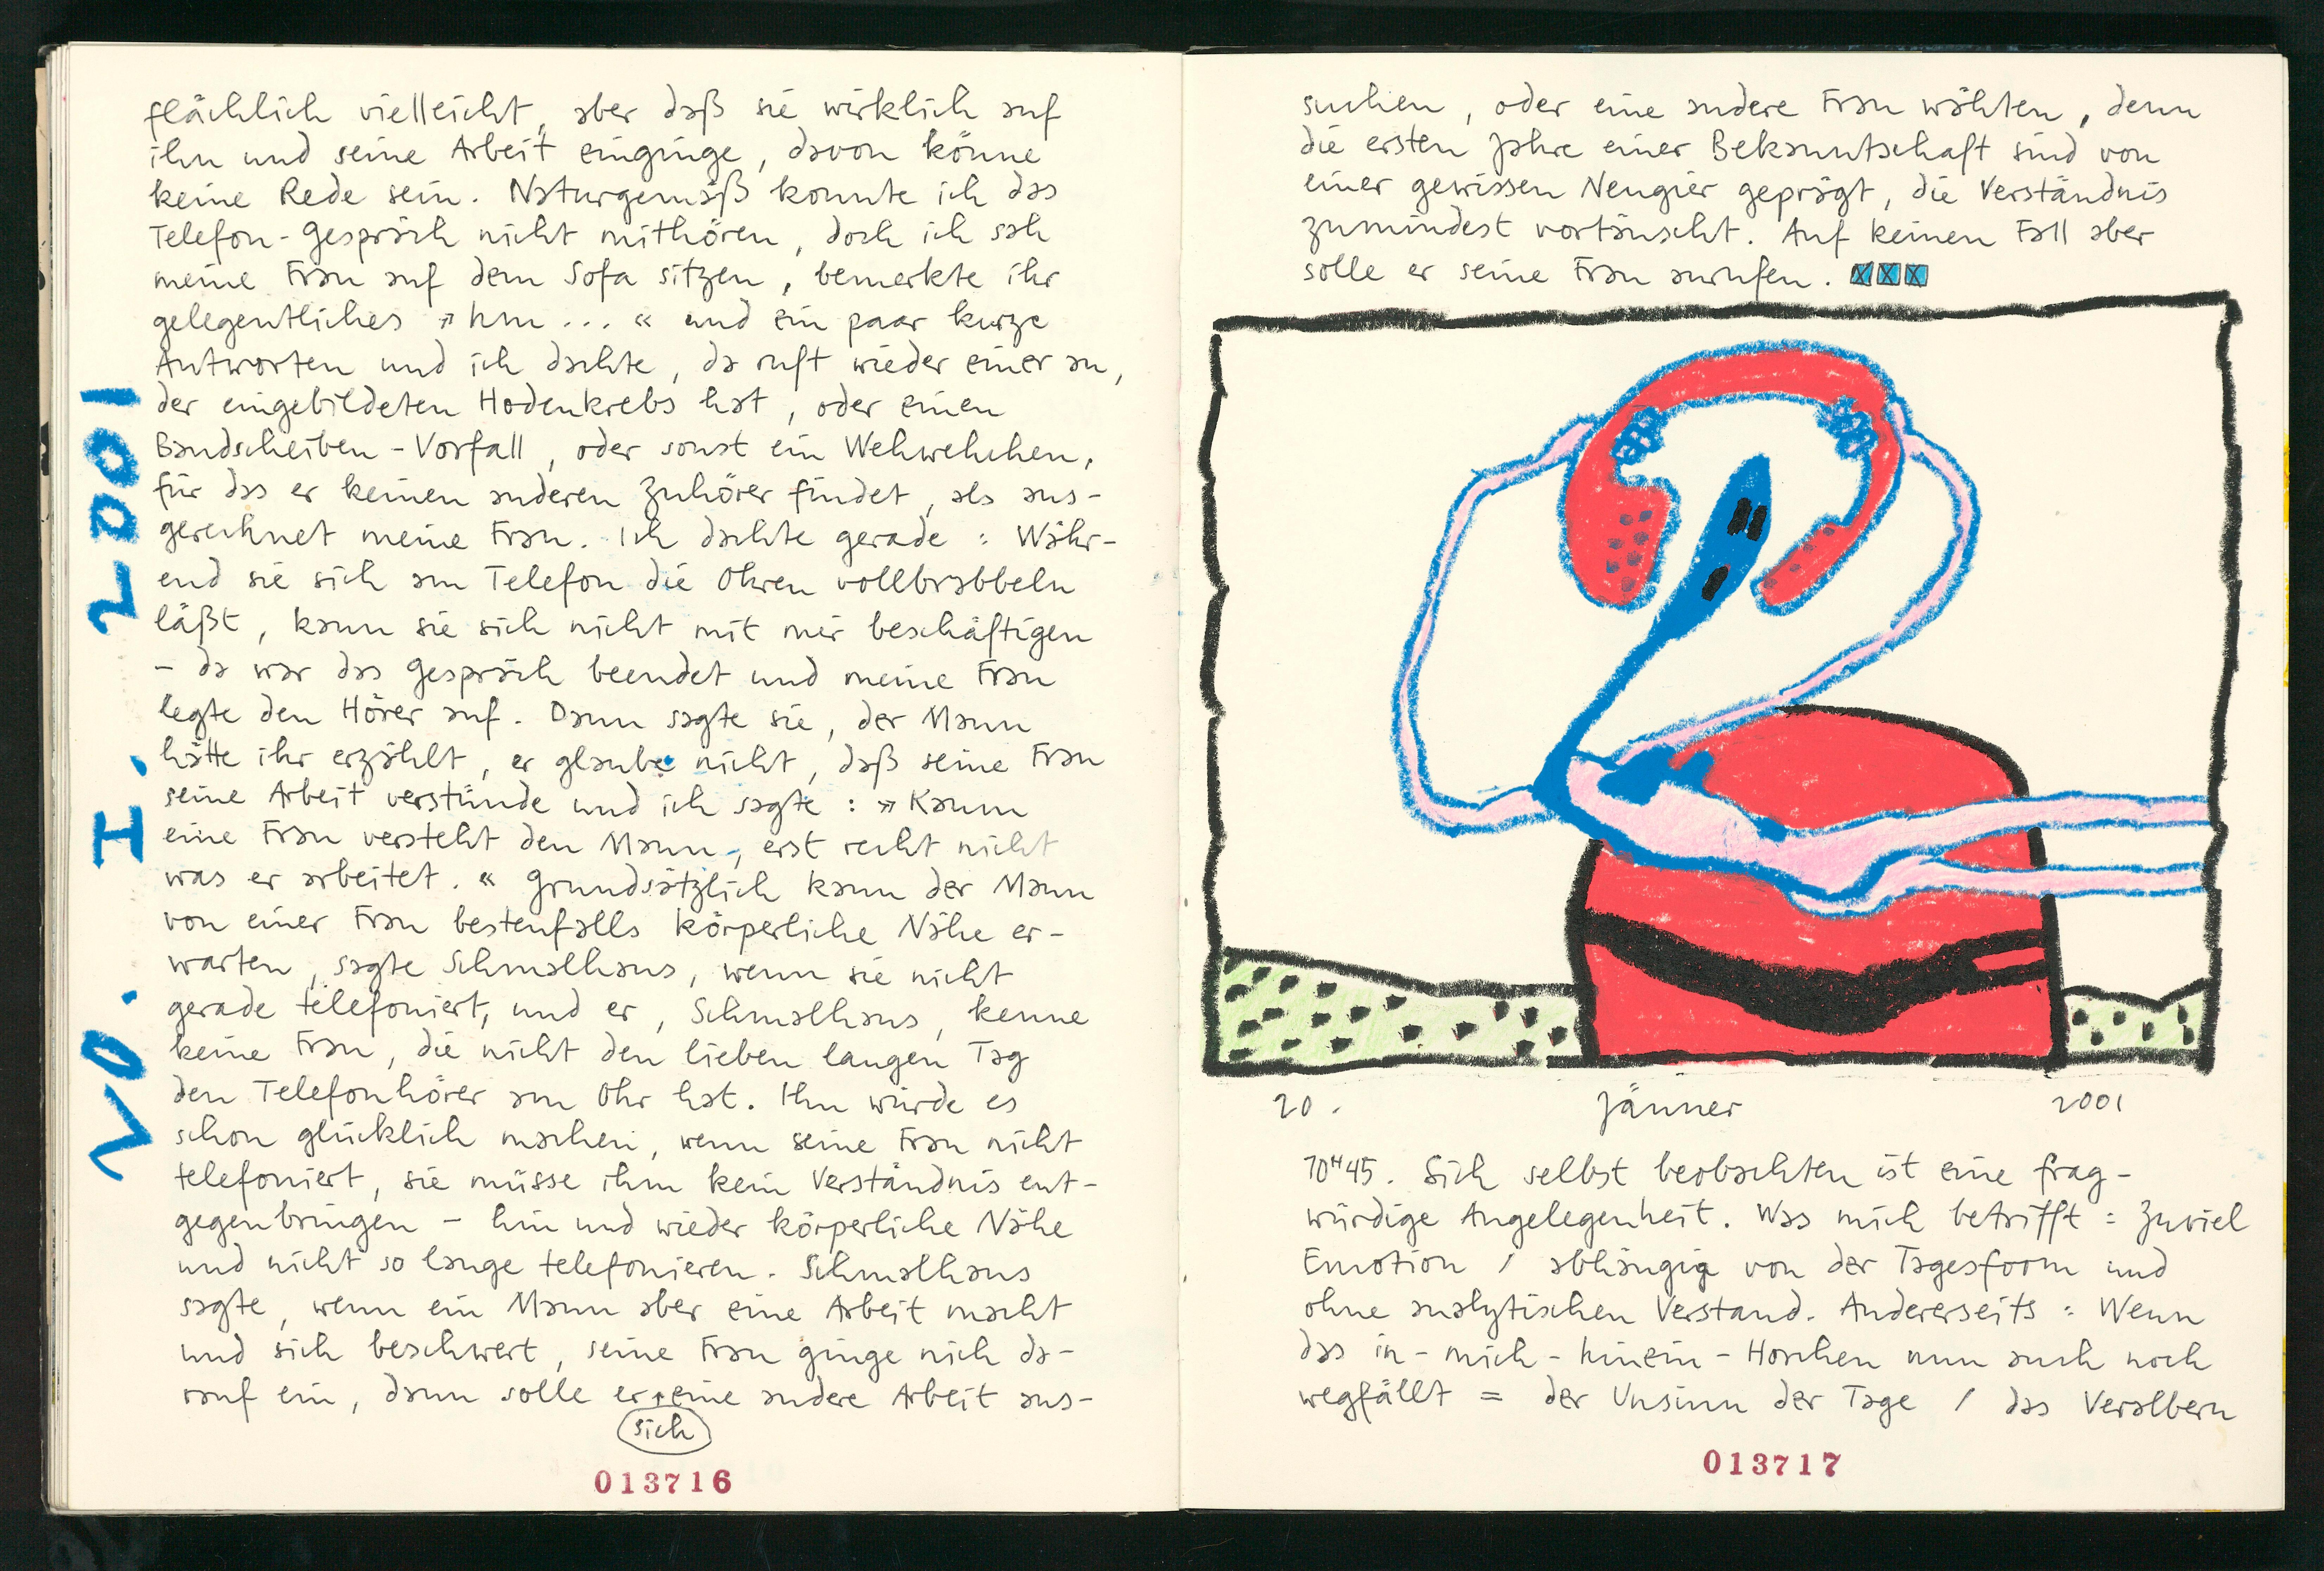 20. I. 2001
flächlich vielleicht, aber daß sie wirklich auf
ihn und seine Arbeit einginge, davon könne
keine Rede sein. Naturgemäß konnte ich das
Telefon-Gespräch nicht mithören, doch ich sah
meine Frau auf dem Sofa sitzen, bemerkte ihr
gelegentliches »hm...« und ein paar kurze
Antworten und ich dachte, da ruft wieder einer an,
der eingebildeten Hodenkrebs hat, oder einen
Bandscheiben-Vorfall, oder sonst ein Wehwehchen,
für das er keinen anderen Zuhörer findet, als aus-
gerechnet meine Frau. Ich dachte gerade: Währ-
end sie sich am Telefon die Ohren vollbrabbeln
läßt, kann sie sich nicht mit mir beschäftigen
– da war das Gespräch beendet und meine Frau
legte den Hörer auf. Dann sagte sie, der Mann
hätte ihr erzählt, er glaube nicht, daß seine Frau
seine Arbeit verstünde und ich sagte: »Kaum
eine Frau versteht den Mann, erst recht nicht
was er arbeitet.« Grundsätzlich kann der Mann
von einer Frau bestenfalls körperliche Nähe er-
warten, sagte Schmalhans, wenn sie nicht
gerade telefoniert, und er, Schmalhans, kenne
keine Frau, die nicht den lieben langen Tag
den Telefonhörer am Ohr hat. Ihn würde es
schon glücklich machen, wenn seine Frau nicht
telefoniert, sie müsse ihm kein Verständnis ent-
gegenbringen – hin und wieder körperliche Nähe
und nicht so lange telefonieren. Schmalhans
sagte, wenn ein Mann aber eine Arbeit macht
und sich beschwert, seine Frau ginge nich da-
rauf ein, dann solle er eine andere Arbeit aus-
sich
013716
suchen, oder eine andere Frau wählen, denn
die ersten Jahre einer Bekanntschaft sind von
einer gewissen Neugier geprägt, die Verständnis
zumindest vortäuscht. Auf keinen Fall aber
solle er seine Frau anrufen. XXX
20. Jänner 2001
10ᴴ45. Sich selbst beobachten ist eine frag-
würdige Angelegenheit. Was mich betrifft: Zuviel
Emotion / abhängig von der Tagesform und
ohne analytischen Verstand. Andererseits: Wenn
das in-mich-hinein-Horchen nun auch noch
wegfällt = der Unsinn der Tage / das Veralbern
013717